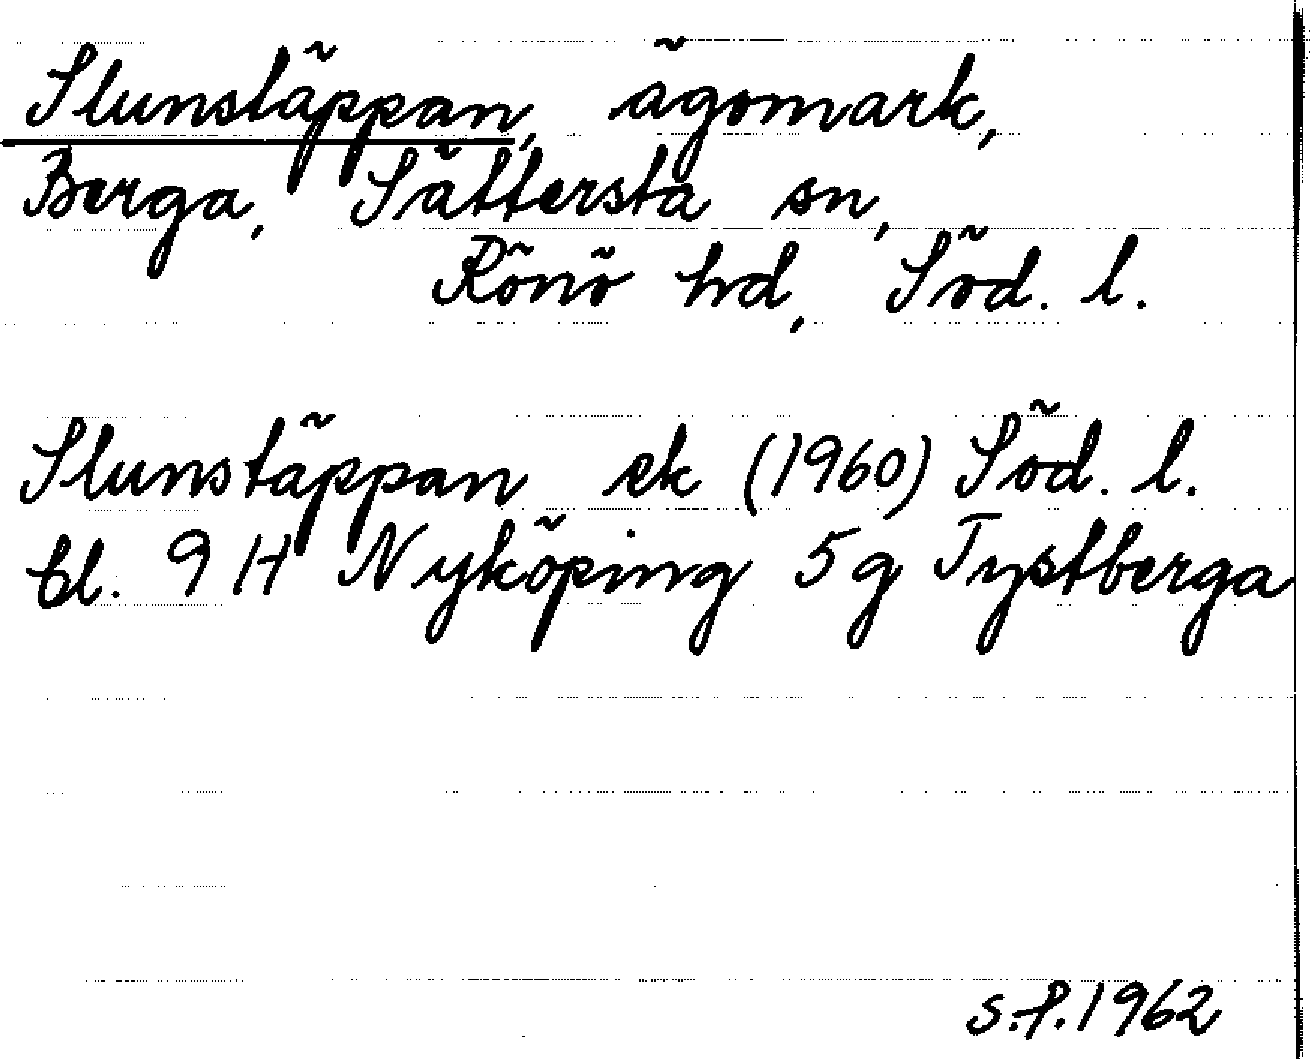 Slunstäppan, ägomark,
Berga, Sättersta sn,
Rönö hd, Söd. l.
Slunstäppan ek (1960) Söd. l.
bl. 9 H Nyköping 5 g Tystberga
S.P. 1962